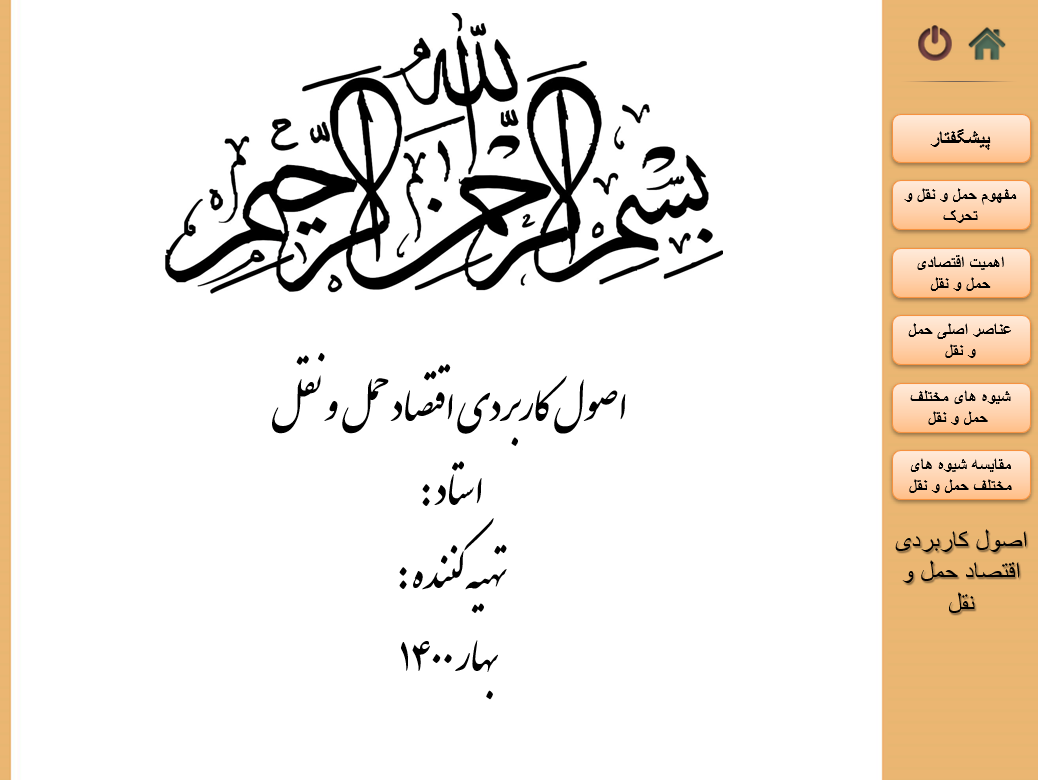 بسم الله الرحمن الرحیم
اصول کاربردی اقتصاد حمل و نقل
استاد:
تهیه کننده:
بهار ۱۴۰۰
پیشگفتار
مفهوم حمل و نقل و
تحرک
اهمیت اقتصادی
حمل و نقل
عناصر اصلی حمل
و نقل
شیوه های مختلف
حمل و نقل
مقایسه شیوه های
مختلف حمل و نقل
اصول کاربردی
اقتصاد حمل و
نقل